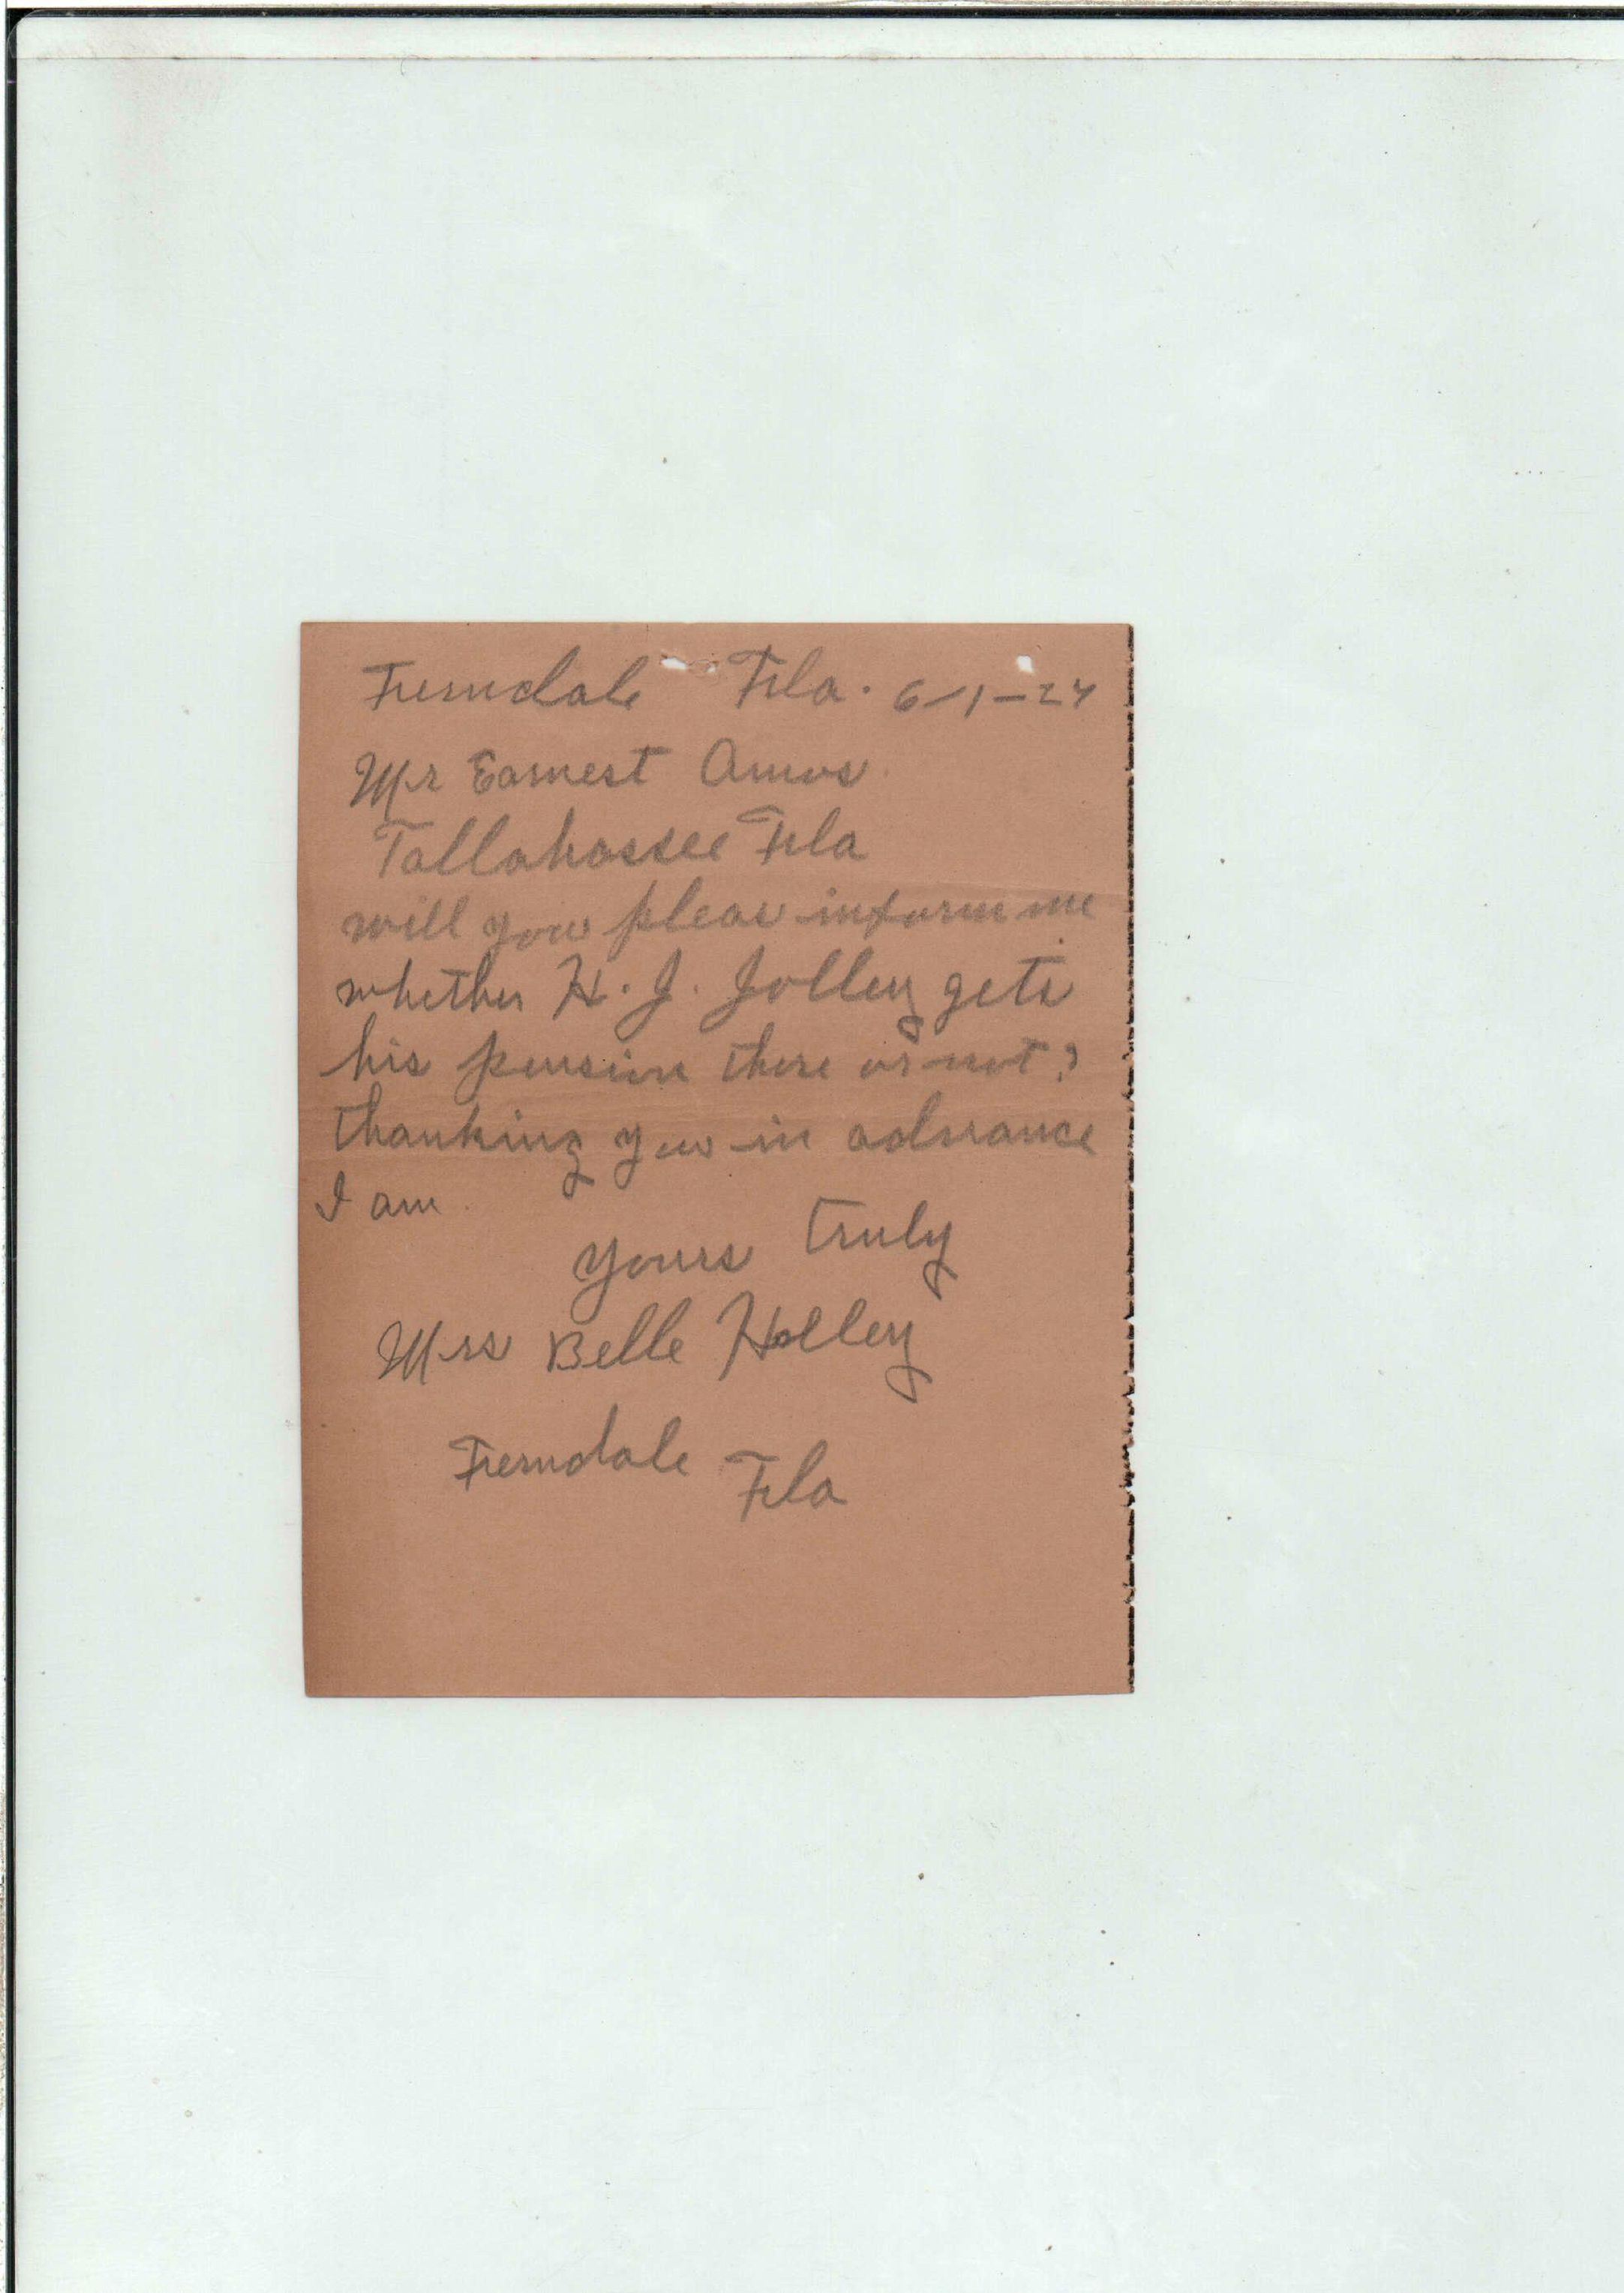 Ferndale Fla. 6-1-24
Mr Earnest Amos.
Tallahassee Fla
will you pleas inform me
whether H. J. Jolley gets
his pension there or not?
thanking you in advance
I am.
yours truly
Mrs Belle Holley
Ferndale Fla